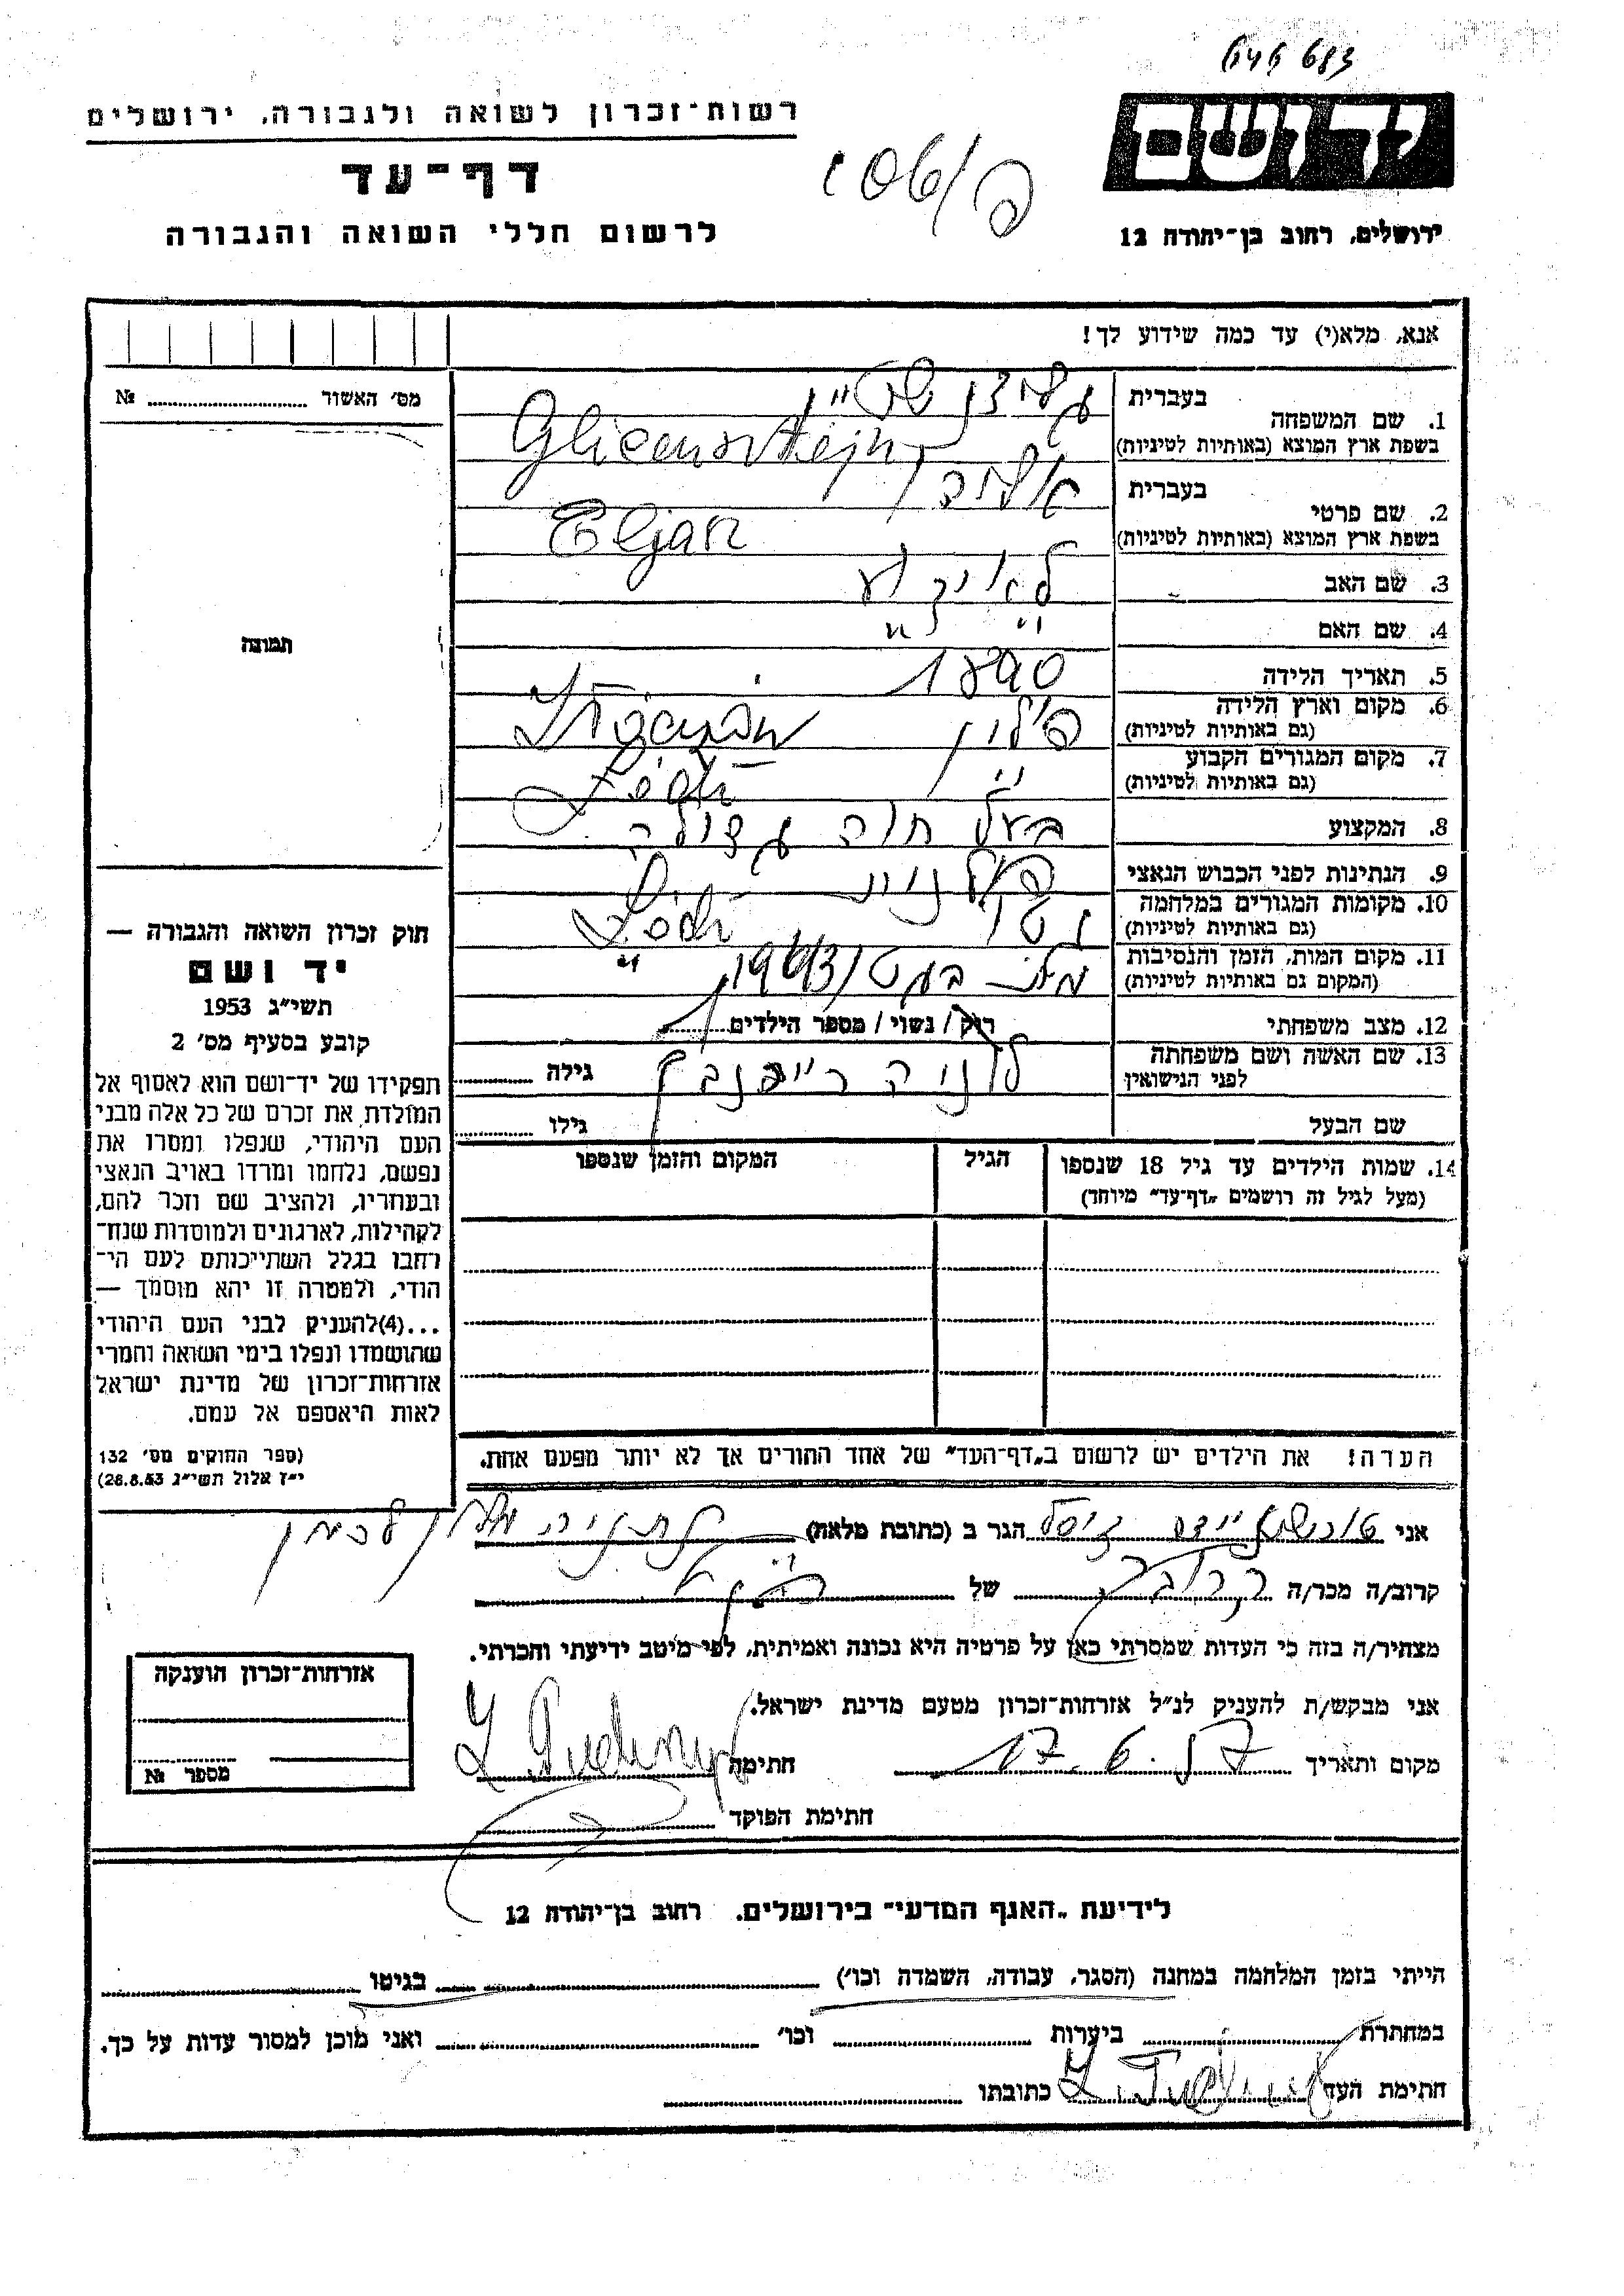 646683
רשות-זכרון לשואה ולגבורה, ירושלים
ידושם
דף-עד
לרשום חללי השואה והגבורה
ירושלים, רחוב בן-יהודה 12
אנא, מלא(י) עד כמה שידוע לך!
מס׳ האשור № 
1. שם המשפחה
בעברית גליצנשטיין
בשפת ארץ המוצא (באותיות לטיניות) Glicensztejn
2. שם פרטי
בעברית
בשפת ארץ המוצא (באותיות לטיניות) Eljasz
3. שם האב
4. שם האם
5. תאריך הלידה 1890
6. מקום וארץ הלידה
(גם באותיות לטיניות) פולין
7. מקום המגורים הקבוע
(גם באותיות לטיניות) Łódź
8. המקצוע בעל חוה גדולה
9. הנתינות לפני הכבוש הנאצי פולנית
10. מקומות המגורים במלחמה
(גם באותיות לטיניות) גטו Łódź
11. מקום המות, הזמן והנסיבות
(המקום גם באותיות לטיניות) מת בגטו 1943
12. מצב משפחתי רוק / נשוי / מספר הילדים
13. שם האשה ושם משפחתה
לפני הנישואין גילה
שם הבעל גילו
14. שמות הילדים עד גיל 18 שנספו
(מעל לגיל זה רושמים „דף-עד״ מיוחד)
הגיל
המקום והזמן שנספו
הערה! את הילדים יש לרשום ב„דף-העד״ של אחד ההורים אך לא יותר מפעם אחת.
תמונה
חוק זכרון השואה והגבורה —
יד ושם
תשי״ג 1953
קובע בסעיף מס׳ 2
תפקידו של יד-ושם הוא לאסוף אל
המולדת את זכרם של כל אלה מבני
העם היהודי, שנפלו ומסרו את
נפשם, נלחמו ומרדו באויב הנאצי
ובעוזריו, ולהציב שם וזכר להם,
לקהילות, לארגונים ולמוסדות שנח-
רחבו בגלל השתייכותם לעם הי-
הודי, ולמטרה זו יהא מוסמך —
...(4)להעניק לבני העם היהודי
שהושמדו ונפלו בימי השואה וחמרי
אזרחות-זכרון של מדינת ישראל
לאות היאספם אל עמם.
(ספר החוקים מס׳ 132
י״ז אלול תשי״ג 28.8.53)
אני הגר ב (כתובת מלאה) נתניה
קרוב/ה מכר/ה של
מצהיר/ה בזה כי העדות שמסרתי כאן על פרטיה היא נכונה ואמיתית, לפי מיטב ידיעתי והכרתי.
אני מבקש/ת להעניק לנ״ל אזרחות-זכרון מטעם מדינת ישראל.
מקום ותאריך 17.6.57 חתימה
חתימת הפוקד
אזרחות-זכרון הוענקה
מספר №
לידיעת „האגף המדעי״ בירושלים, רחוב בן-יהודה 12
הייתי בזמן המלחמה במחנה (הסגר, עבודה, השמדה וכו׳) בגיטו
במחתרת ביערות וכו׳ ואני מוכן למסור עדות על כך.
חתימת העד כתובתו